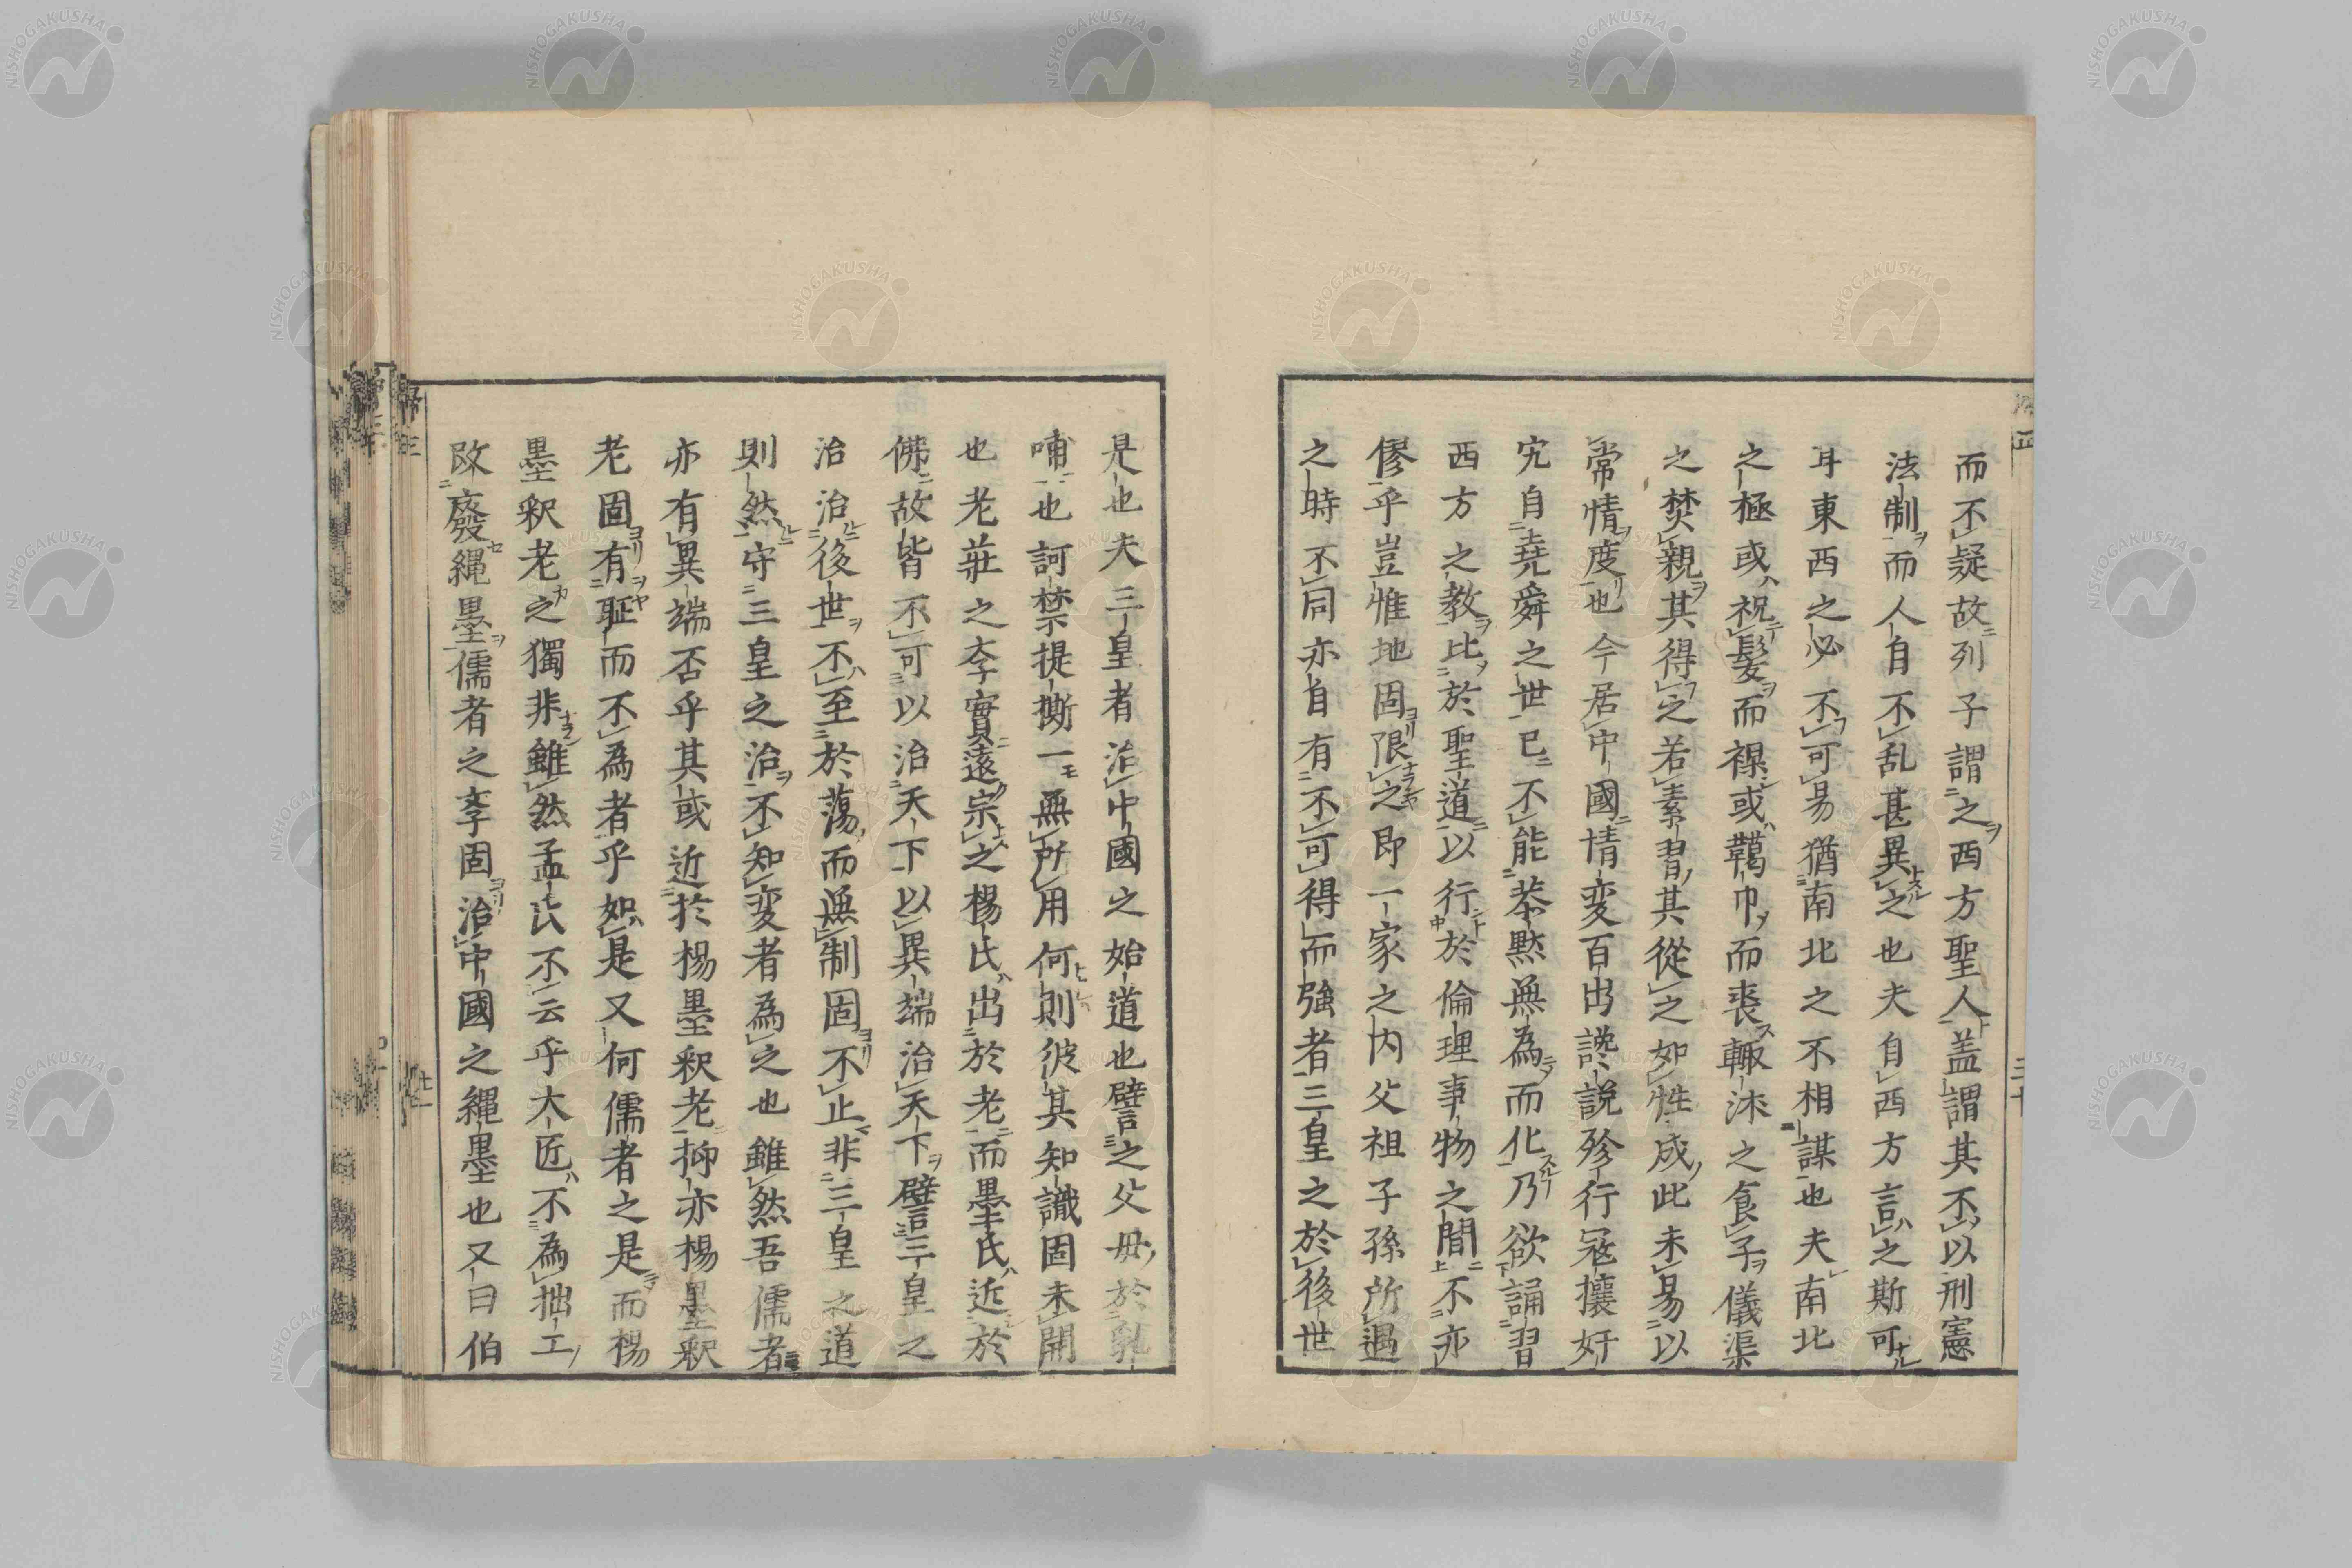 而不疑故列子謂之西方聖人盖謂其不以刑憲
法制而人自不乱甚異之也夫自西方言之斯可
耳東西之必不可易猶南北之不相謀也夫南北
之極或祝髮而裸或鞨巾而裘輙沐之食子儀渠
之焚親其得之若素習其從之如性成此未易以
常情度也今居中國情変百出讒説殄行冦攘奸
宄自堯舜之世已不能恭黙無為而化乃欲誦習
西方之教比於聖道以行於倫理事物之間不亦
僇乎豈惟地固限之即一家之内父祖子孫所遇
之時不同亦自有不可得而強者三皇之於後世
是也夫三皇者治中國之始道也譬之父毋於乳
哺也訶禁提撕一無所用何則彼其知識固未開
也老莊之李實遠宗之楊氏出於老而墨氏近於
佛故皆不可以治天下以異端治天下譬三皇之
治治後世不至於蕩而無制固不止非三皇之道
則然守三皇之治不知変者為之也雖然吾儒者
亦有異端否乎其或近於楊墨釈老抑亦楊墨釈
老固有耻而不為者乎如是又何儒者之是而楊
墨釈老之獨非雖然孟氏不云乎大匠不為拙工
改廢繩墨儒者之李固治中國之繩墨也又曰伯